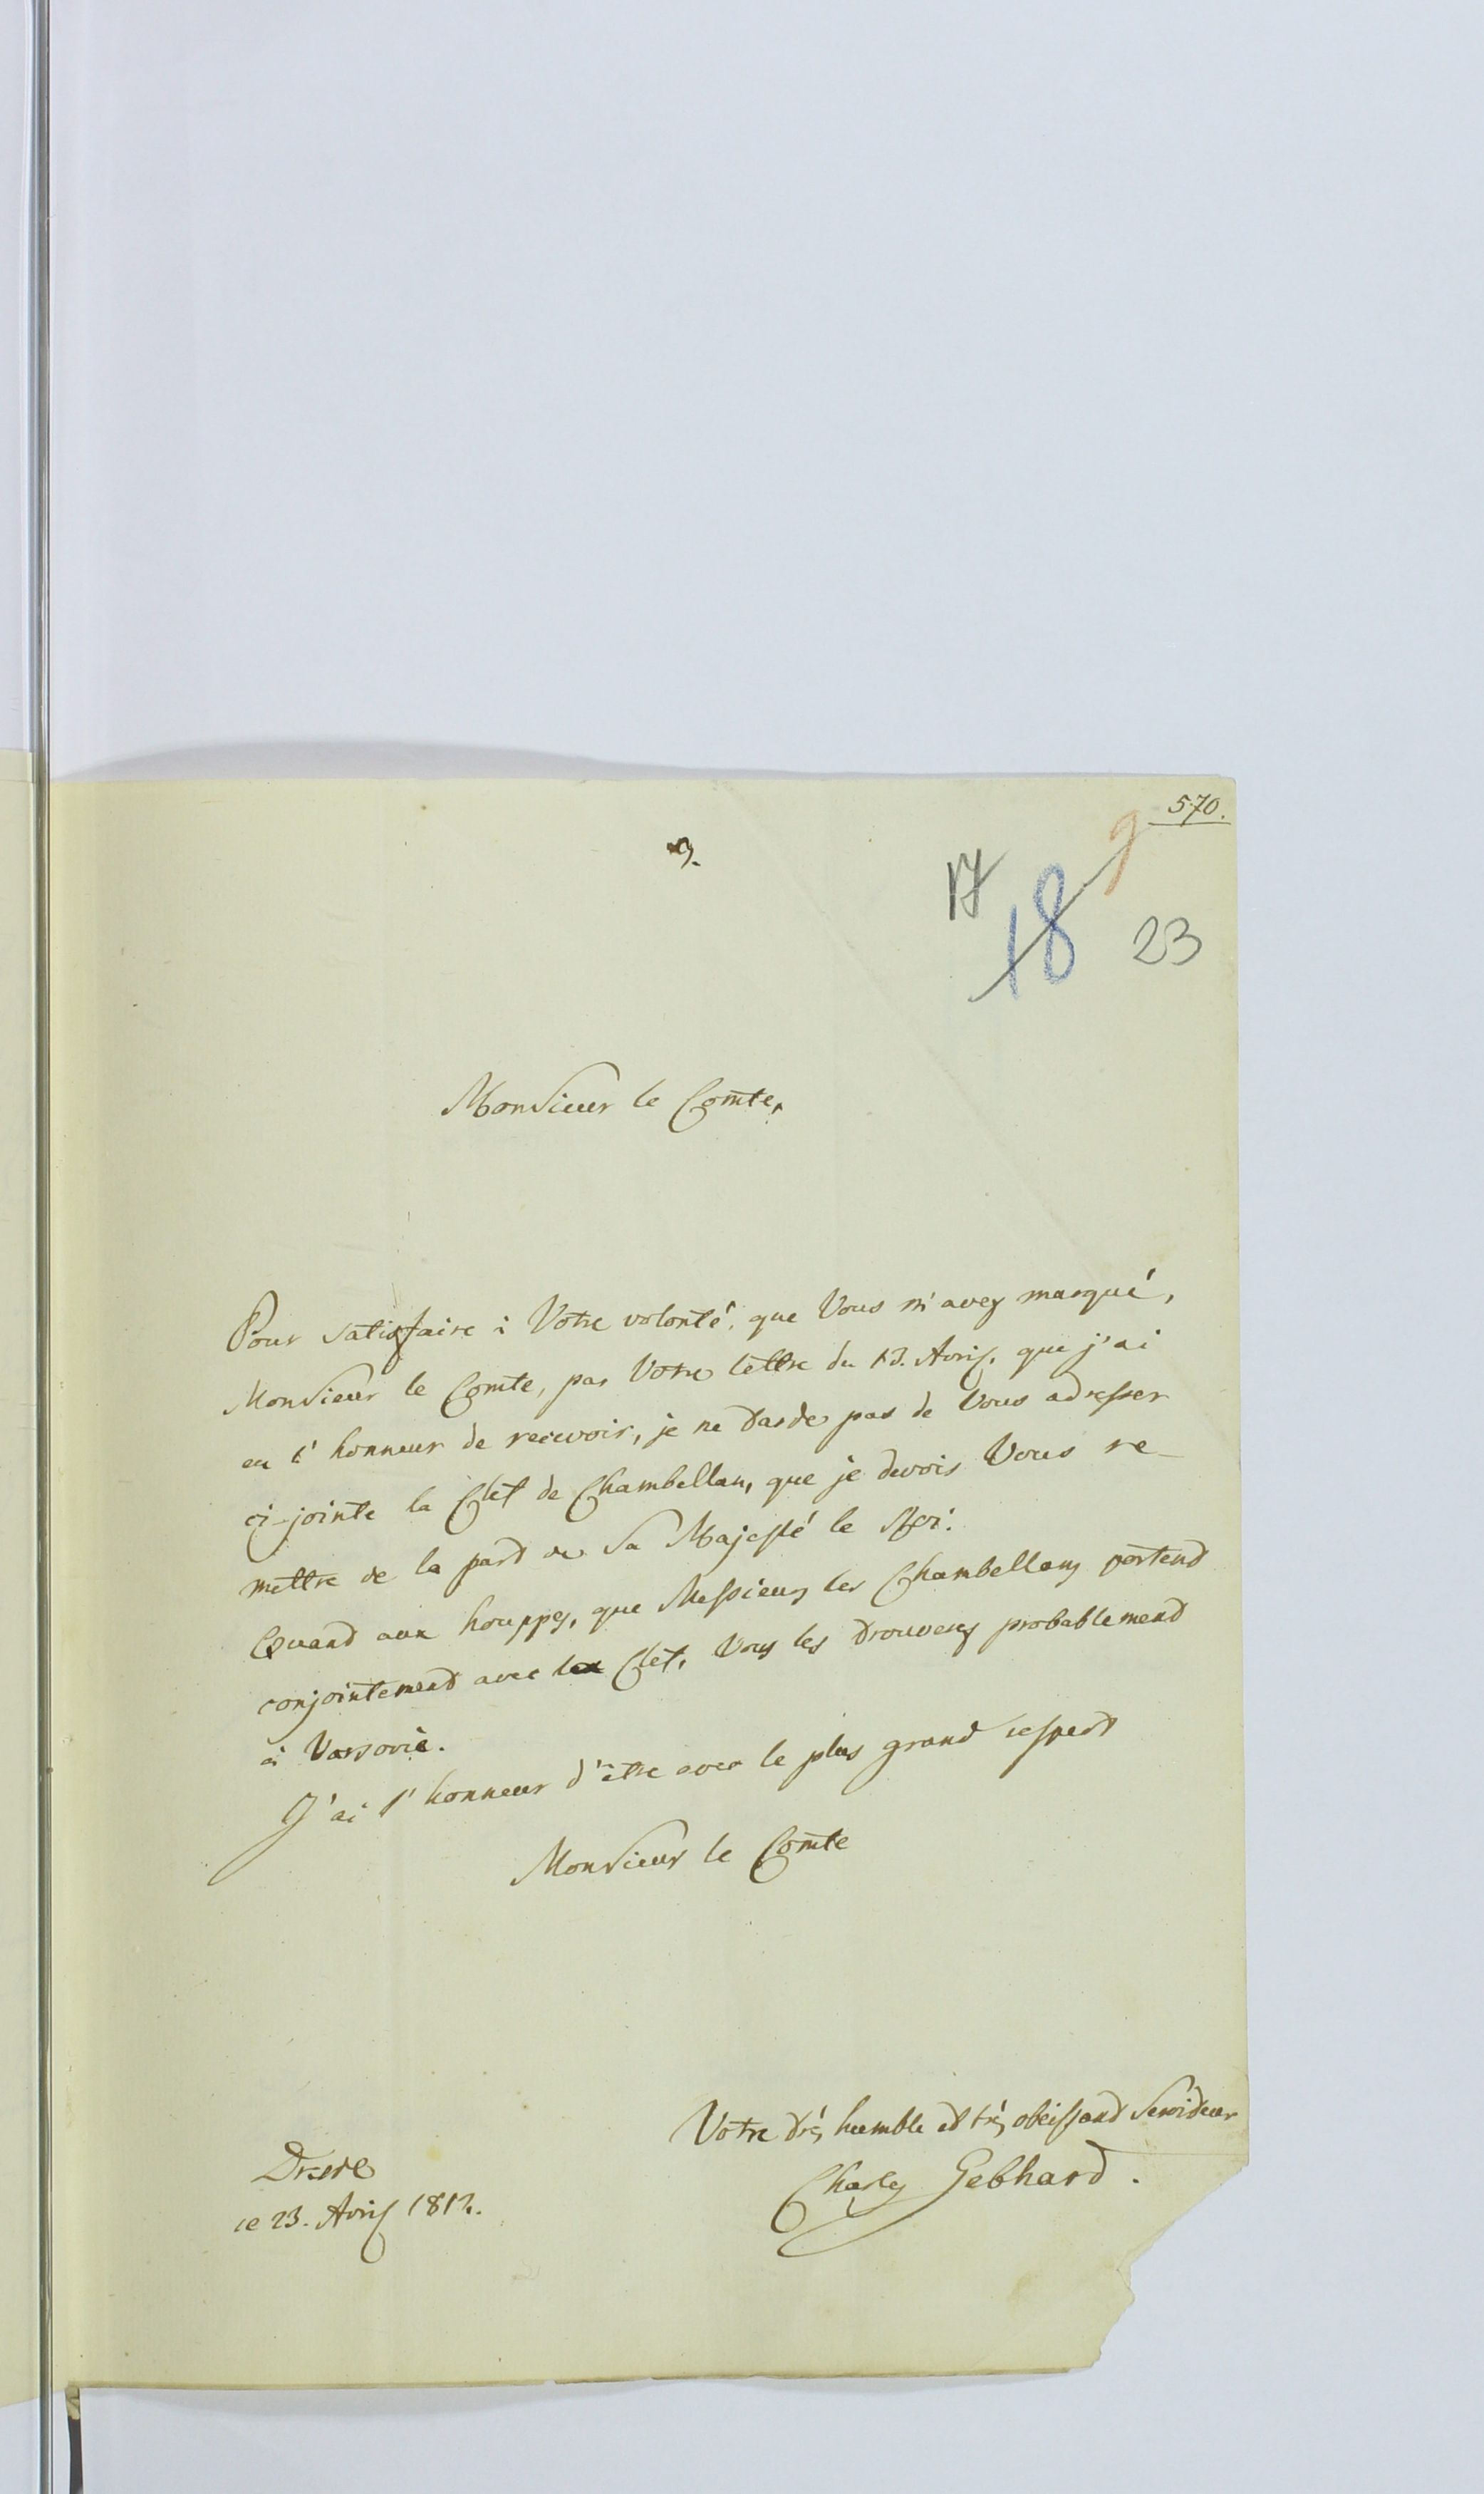 570.
9
9.
17
18
23
Monsieur le Comte,
Pour satisfaire à Votre volonté, que Vous m'avez marqué,
Monsieur le Comte, par Votre lettre du 13. Avril, que j'ai
eu l'honneur de recevoir, je ne tarde pas de Vous adresser
ci-jointe la Clef de Chambellan, que je devois Vous re-
mettre de la part de Sa Majesté le Roi.
Quand aux houppes, que Messieurs les Chambellans portent
conjointement avec la Clef, Vous les trouverez probablement
à Varsovie.
J'ai l'honneur d'être avec le plus grand respect
Monsieur le Comte
Votre très humble et très obeissant Serviteur
Charles Gebhard.
Dresde
ce 23. Avril 1812.